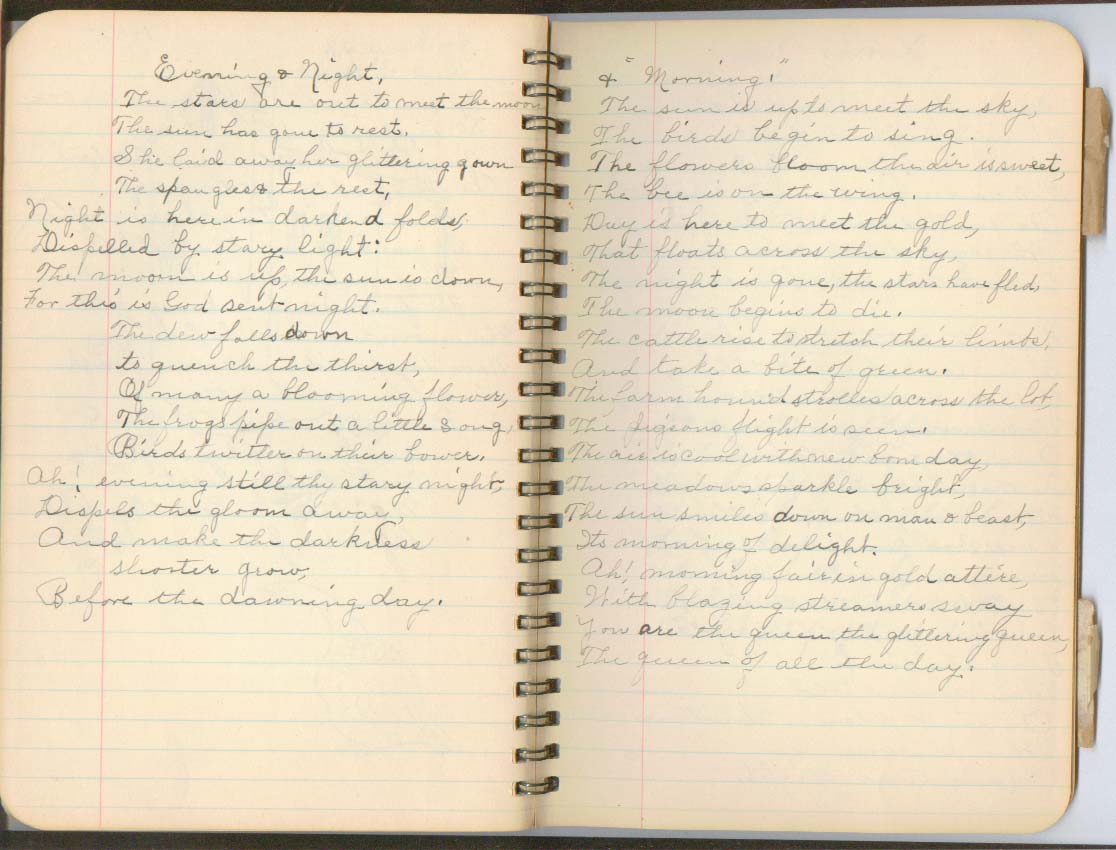 Evening & Night,
The stars are out to meet the moon
The sun has gone to rest.
She laid away her glittering gown
The spangles & the rest,
Night is here in darkend folds,
Dispelled by stary light:
The moom is up, the sun is down,
For this is God sent night.
The dew falls down
to quench the thirst,
Of many a blooming flower,
The frogs pipe out a little song,
Birds twitter on their bower.
Ah! evening still thy stary night,
Dispels the gloom away,
And make the darkness
shorter grow,
Before the dawning day.
& "Morning!"
The sun is up to meet the sky,
The birds begin to sing.
The flowers bloom the air is sweet,
The bee is on the wing.
Day is here to meet the gold,
That floats across the sky,
The night is gone, the stars have fled,
The moon begins to die.
The cattle rise to stretch their limbs,
And take a bite of green.
The farm hound strolles across the lot,
The pigeons flight is seen.
The air is cool with new born day,
The meadows sparkle bright,
The sun smiles down on man & beast,
Its morning of delight.
Ah! morning fair in gold attire,
With blazing streamers sway
You are the queen the glittering queen,
The queen of all the day.